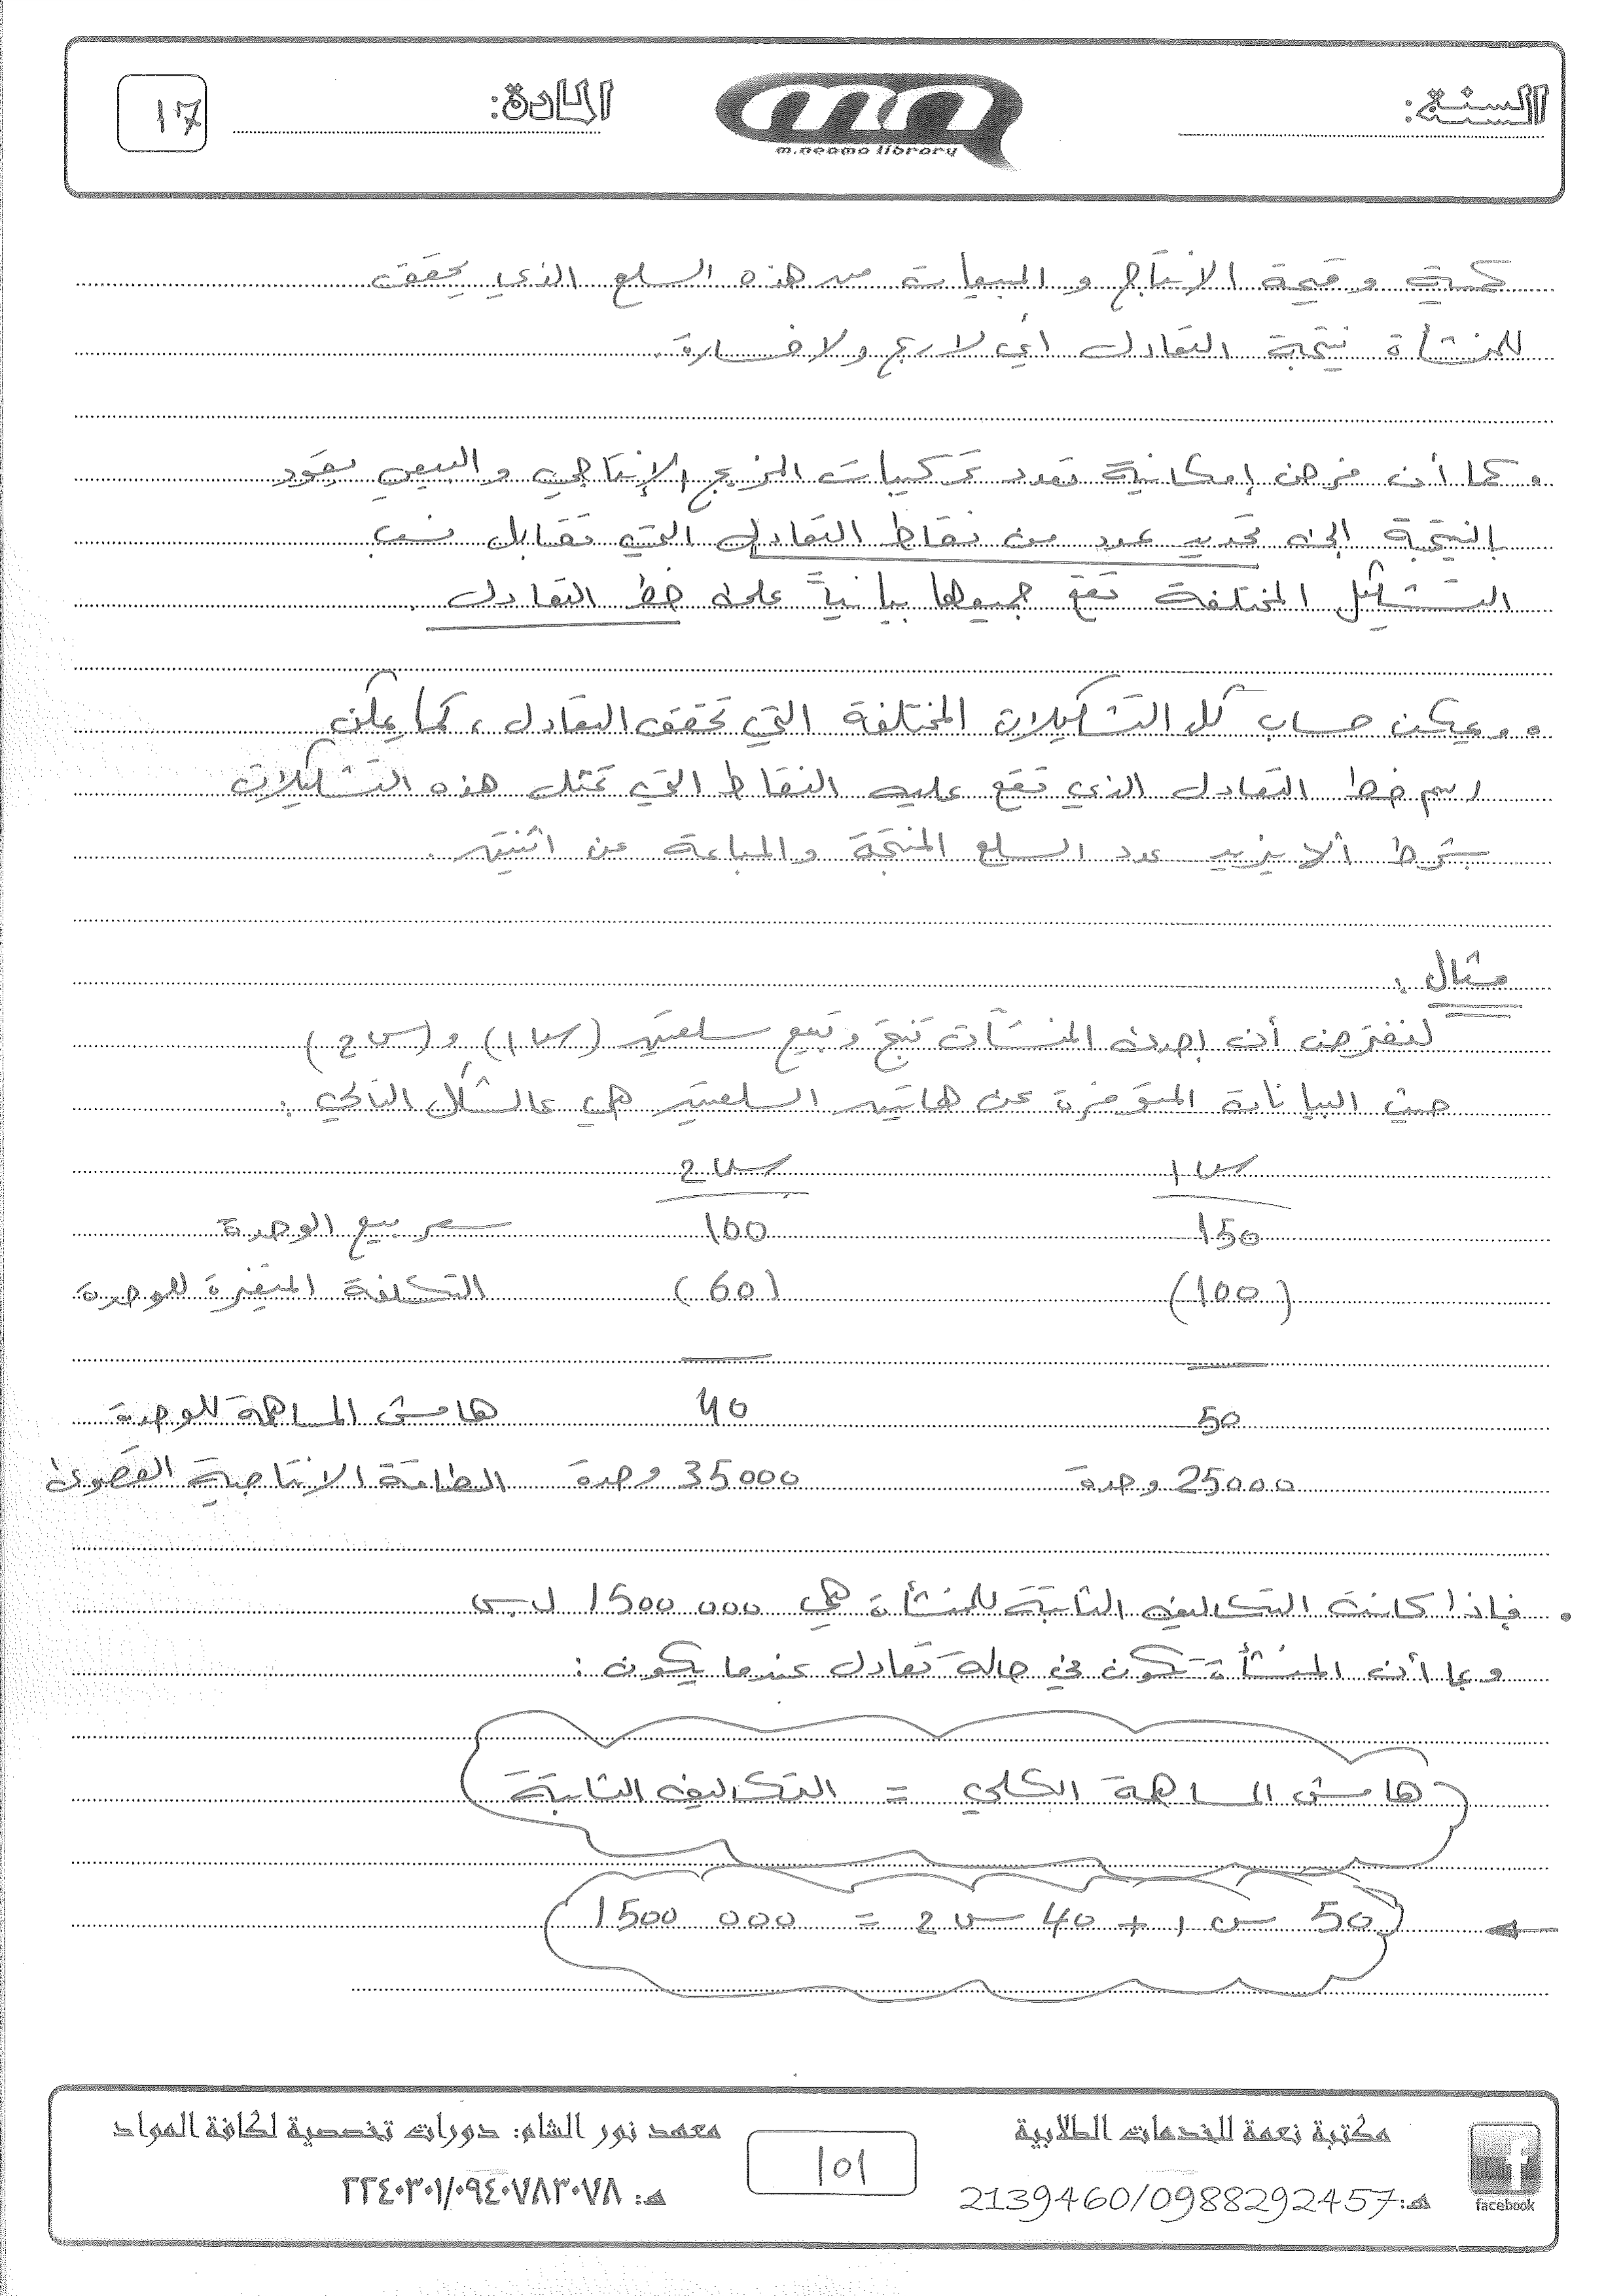 السنة:
المادة:
17
m.neama library
كمية وقيمة الانتاج و المبيعات من هذه السلع الذي يحقق
للمنشأة نتيجة التعادل أي لا ربح ولا خسارة.
• كما أن فرض إمكانية تعدد تركيبات المزيج الإنتاجي والبيعي يقود
بالنتيجة إلى تحديد عدد من نقاط التعادل التي تقابل نسب
التشكيل المختلفة تقع جميعها بيانياً على خط التعادل.
• ويمكن حساب كل التشكيلات المختلفة التي تحقق التعادل، كما يمكن
رسم خط التعادل الذي تقع عليه النقاط التي تمثل هذه التشكيلات
بشرط ألا يزيد عدد السلع المنتجة والمباعة عن اثنتين.
مثال:
لنفترض أن إحدى المنشآت تنتج وتبيع سلعتين (س1) و(س2)
حيث البيانات المتوفرة عن هاتين السلعتين هي كالشكل التالي:
س1 س2
150 100 سعر بيع الوحدة
(100) (60) التكلفة المتغيرة للوحدة
50 40 هامش المساهمة للوحدة
25000 وحدة 35000 وحدة الطاقة الانتاجية القصوى
• فإذا كانت التكاليف الثابتة للمنشأة هي 1500 000 ل.س
وبما أن المنشأة تكون في حالة تعادل عندما يكون:
هامش المساهمة الكلي = التكاليف الثابتة
← 50 س1 + 40 س2 = 1500 000
facebook
مكتبة نعمة للخدمات الطلابية
هـ:2139460/0988292457
101
معهد نور الشام: دورات تخصصية لكافة المواد
هـ: ٢٢٤٠٣٠١/٠٩٤٠٧٨٣٠٧٨